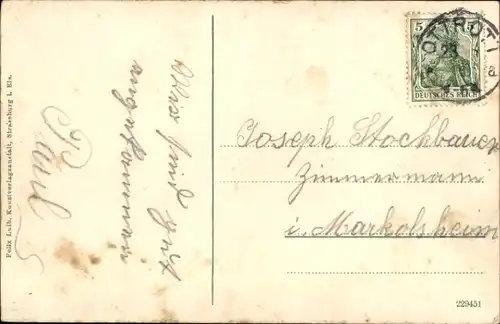 Wir sind gut
angekommen
Paul
Felix Luib, Kunstverlagsanstalt, Strassburg i. Els.
5 5
DEUTSCHES REICH
OTTROTT
Joseph Stockbauer
Zimmermann
i. Markolsheim
229451